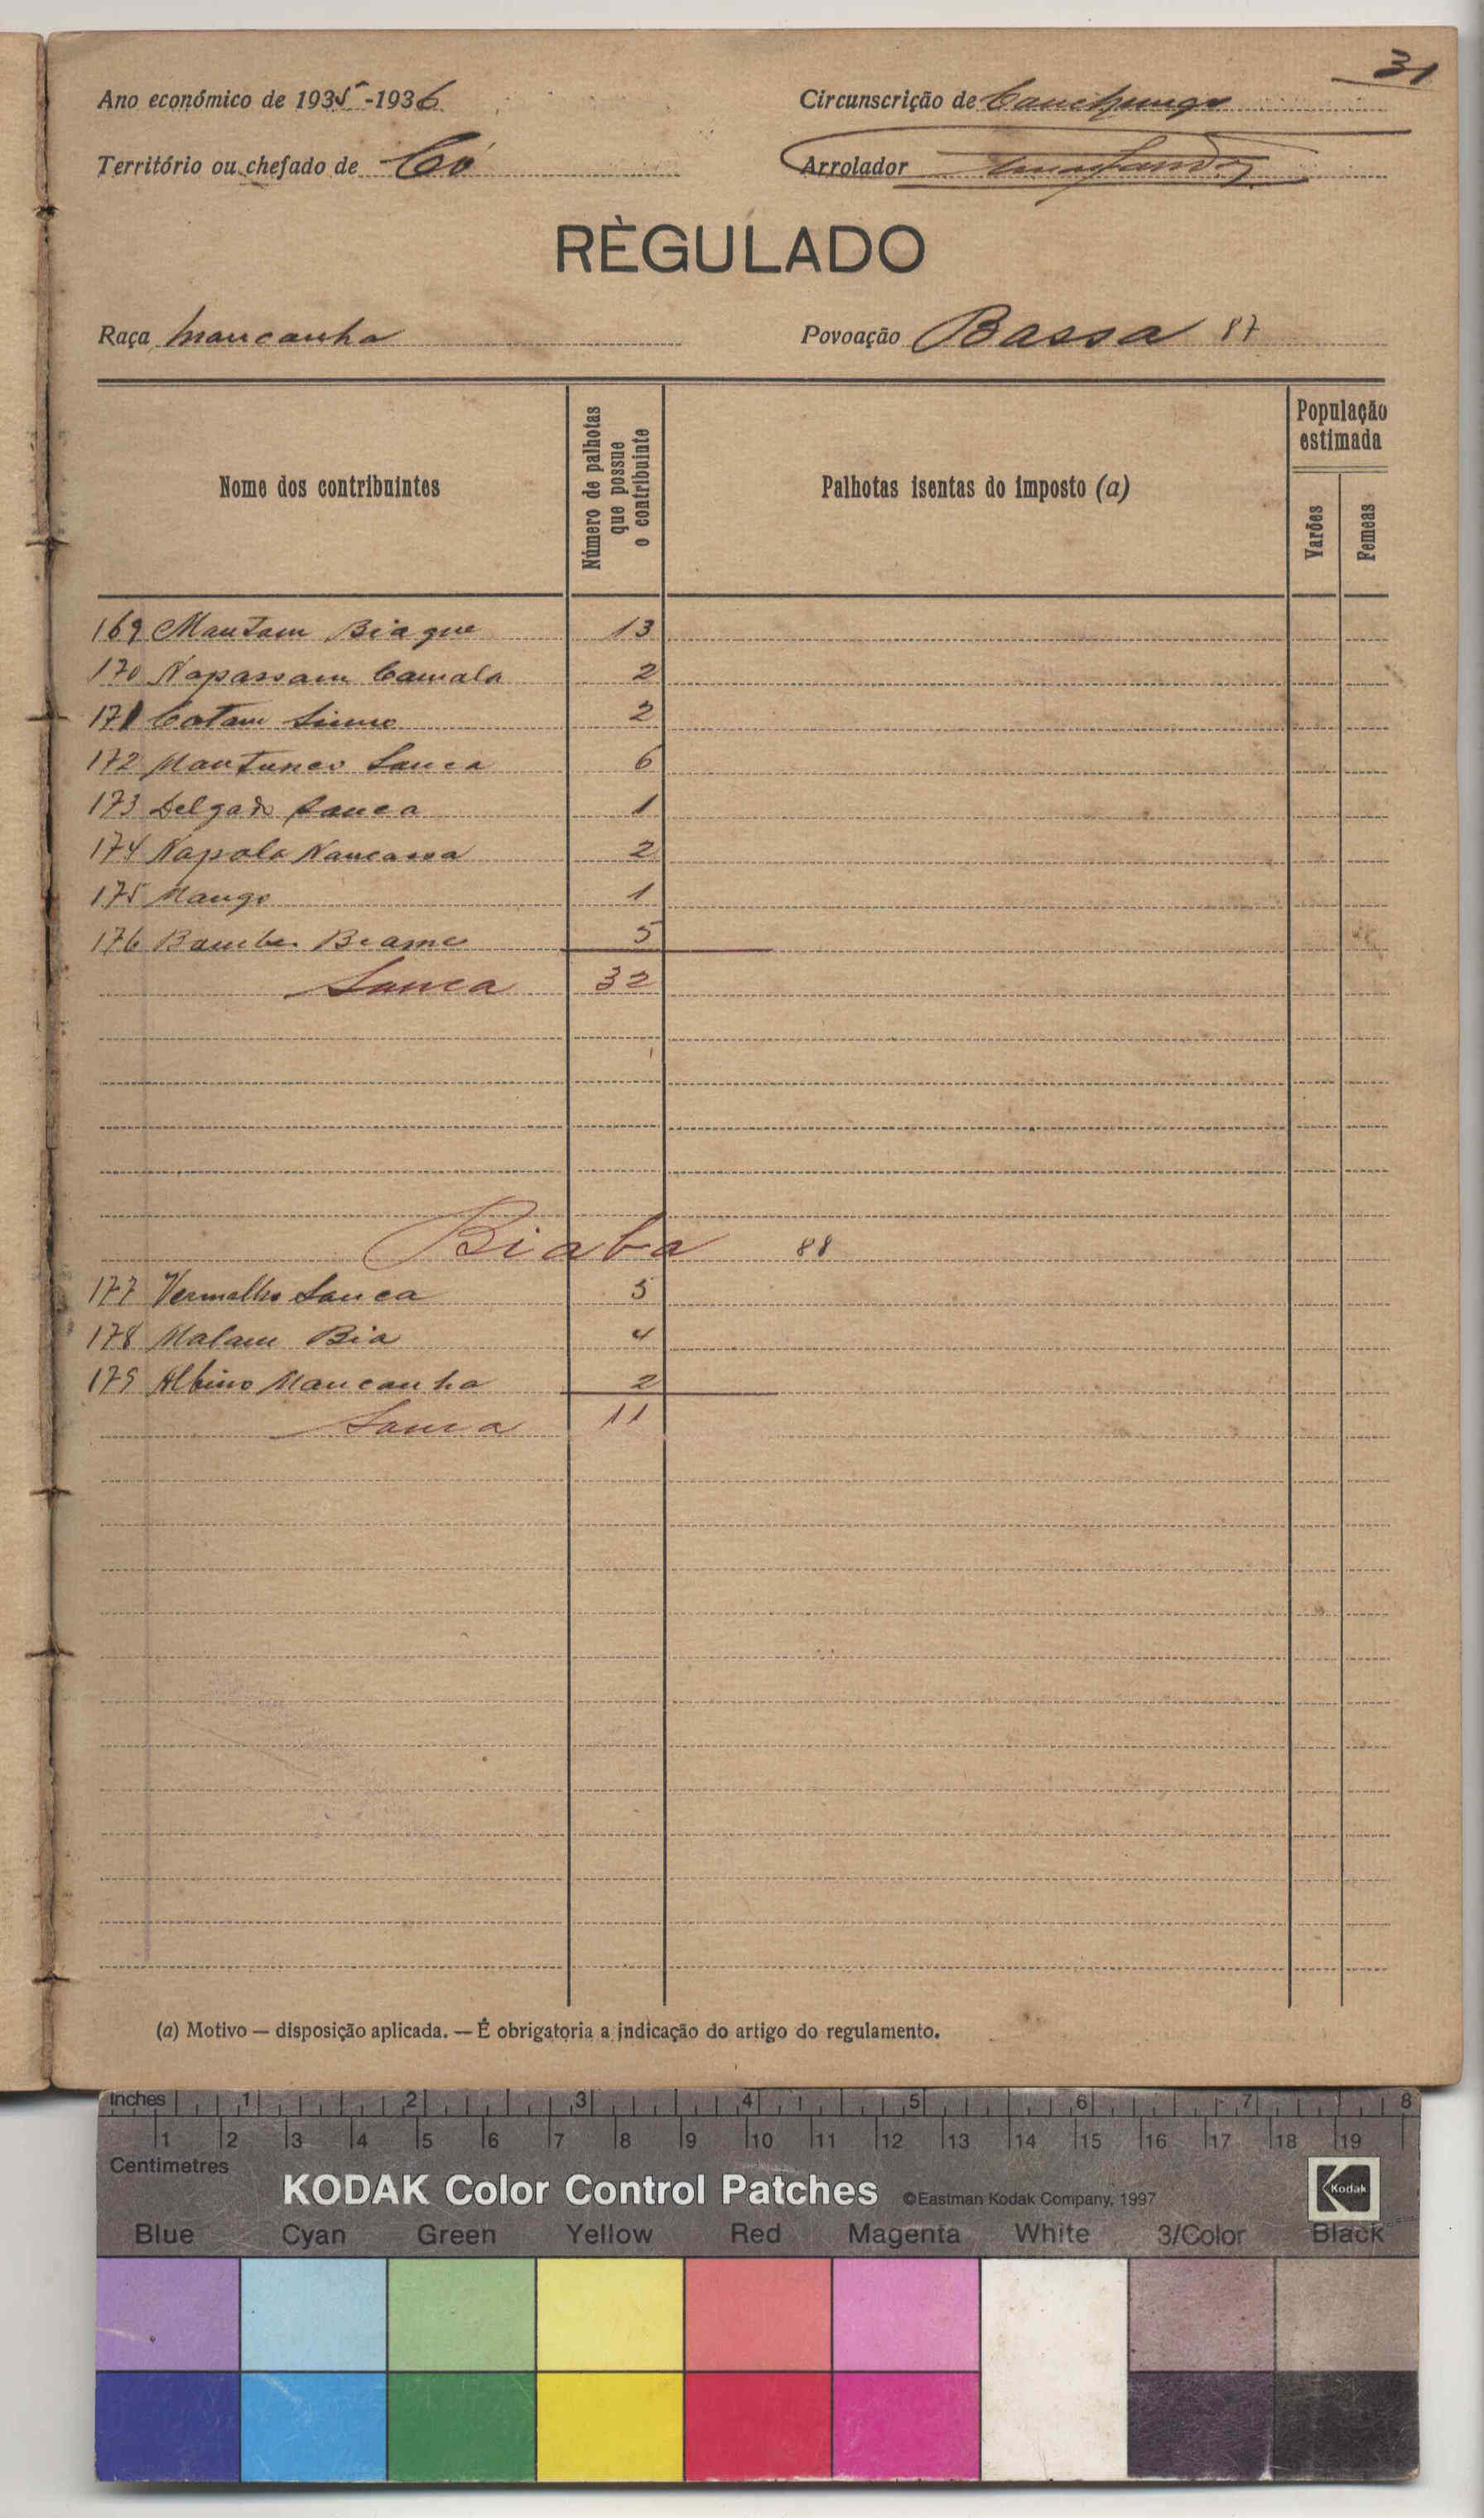 31
Ano económico de 1935-1936
Circunscrição de Canchungo
Território ou chefado de Có
Arrolador
RÈGULADO
Raça Mancanha
Povoação Bassa 87
Nome dos contribuintes
Número de palhotas que possue o contribuinte
Palhotas isentas do imposto (a)
População estimada
Varões
Femeas
169 Mantam Biague 13
170 Napassam Camala 2
171 Catam 2
172 Mantunco Sanca 6
173 Delgado Sanca 1
174 Napola Nancassa 2
175 Mango 1
176 Bamba Biame 5
Soma 32
Biaba 88
177 Vermelho Sanca 5
178 Malam Bia 4
179 Albino Mancanha 2
Soma 11
(a) Motivo — disposição aplicada. — É obrigatoria a indicação do artigo do regulamento.
Inches 1 2 3 4 5 6 7 8
1 2 3 4 5 6 7 8 9 10 11 12 13 14 15 16 17 18 19
Centimetres
KODAK Color Control Patches ©Eastman Kodak Company, 1997 Kodak
Blue Cyan Green Yellow Red Magenta White 3/Color Black